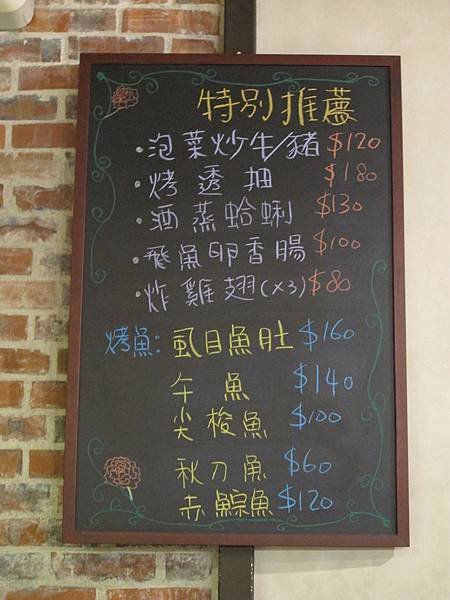 特別推薦
·泡菜炒牛/豬 $120
·烤透抽 $180
·酒蒸蛤蜊 $130
·飛魚卵香腸 $100
·炸雞翅(x3) $80
烤魚: 虱目魚肚 $160
午魚 $140
尖梭魚 $100
秋刀魚 $60
赤鯮魚 $120